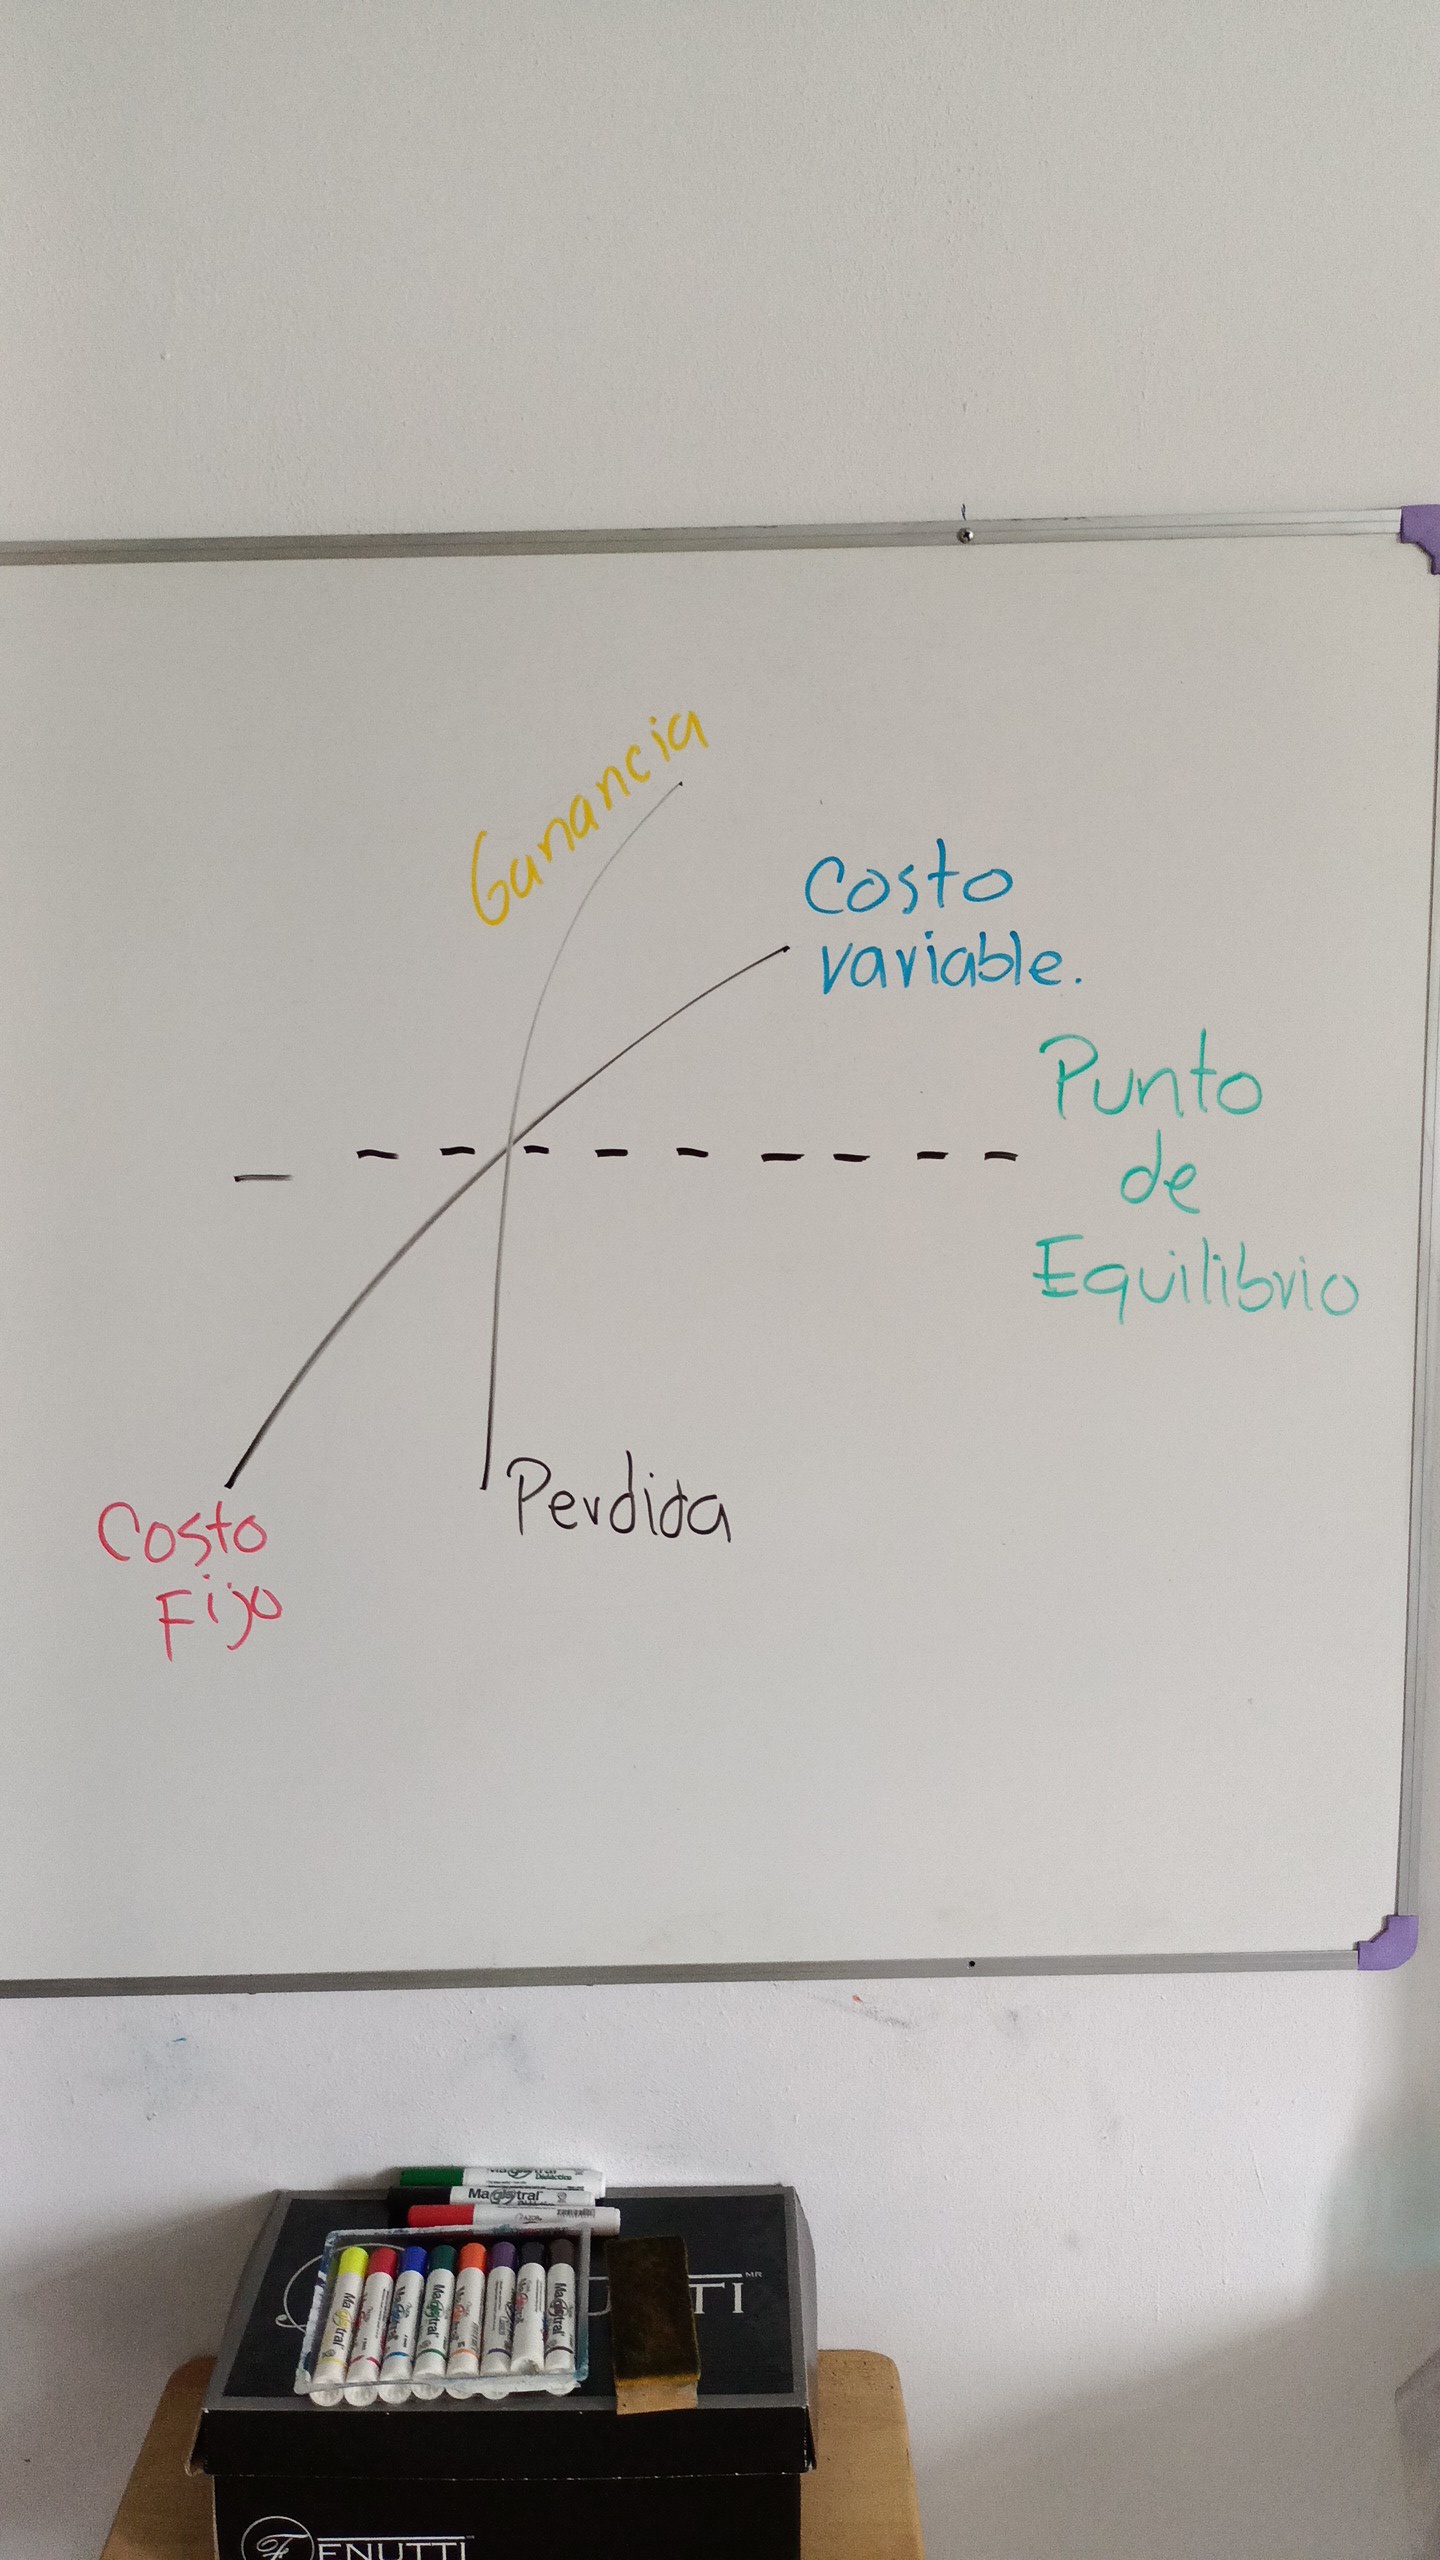 Ganancia
Costo
variable.
Punto
de
Equilibrio
Perdida
Costo
Fijo
Magistral
Magistral
Magistral
Magistral
Magistral
UTTI MR
FENUTTI